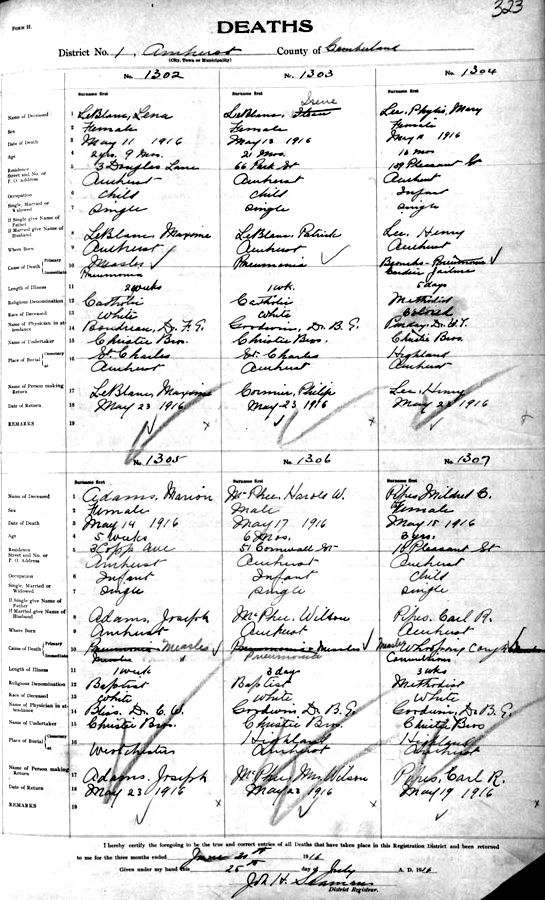 323
FORM H.
DEATHS
District No. 1, Amherst County of Cumberland
(City, Town or Municipality)
No. 1302 No. 1303 No. 1304
Surname first Surname first Surname first
Name of Deceased 1 LeBlanc, Lena LeBlanc, Irene Lee, Phylis, Mary
Sex 2 Female Female Female
Date of Death 3 May 11 1916 May 13 1916 May 1916
Age 4 2 yrs. 9 mos. 21 mos. 10 mos
Residence Street and No. or P. O. Address 5 3 Douglas Lane 66 Park St 159 Pleasant St
Amherst Amherst Amherst
Occupation 6 Child Child Infant
Single, Married or Widowed 7 Single Single Single
If Single give Name of Father
If Married give Name of Husband 8 LeBlanc, Maxime LeBlanc, Patrick Lee, Henry
Where Born 9 Amherst Amherst Amherst
Cause of Death Primary Immediate 10 Measles Pneumonia Broncho-Pneumonia
Pneumonia Cardiac failure
Length of Illness 11 2 weeks 1 wk. 5 days
Religious Denomination 12 Catholic Catholic Methodist
Race of Deceased 13 White White Colored
Name of Physician in attendance 14 Boudreau, Dr. F. E. Goodwin, Dr. B. E. Purdy, Dr. W. T.
Name of Undertaker 15 Christie Bros. Christie Bros. Christie Bros
Place of Burial Cemetery at 16 St. Charles St. Charles Highland
Amherst Amherst Amherst
Name of Person making Return 17 LeBlanc, Maxime Cormier, Philip Lee, Henry
Date of Return 18 May 23 1916 May 23 1916 May 23 1916
REMARKS 19
No. 1305 No. 1306 No. 1307
Surname first Surname first Surname first
Name of Deceased 1 Adams, Marion McPhee, Harold W. Pipes, Mildred C.
Sex 2 Female Male Female
Date of Death 3 May 14 1916 May 17 1916 May 15 1916
Age 4 5 weeks 6 mos. 3 yrs.
Residence Street and No. or P. O. Address 5 3 Copp Ave 51 Cornwall St 18 Pleasant St
Amherst Amherst Amherst
Occupation 6 Infant Infant Child
Single, Married or Widowed 7 Single Single Single
If Single give Name of Father
If Married give Name of Husband 8 Adams, Joseph McPhee, Wilson Pipes, Carl R.
Where Born 9 Amherst Amherst Amherst
Cause of Death Primary Immediate 10 Pneumonia Measles Pneumonia Measles Measles Whooping Cough
Measles " Pneumonia Convulsions
Length of Illness 11 1 week 3 day 3 wks
Religious Denomination 12 Baptist Baptist Methodist
Race of Deceased 13 White White White
Name of Physician in attendance 14 Bliss, Dr. C. W. Goodwin Dr. B. E. Goodwin, Dr. B. E.
Name of Undertaker 15 Christie Bros. Christie Bros. Christie Bros
Place of Burial Cemetery at 16 Highland Highland
Westchester Amherst Amherst
Name of Person making Return 17 Adams, Joseph McPhee, Mrs Wilson Pipes, Carl R.
Date of Return 18 May 23 1916 May 23 1916 May 19 1916
REMARKS 19
I hereby certify the foregoing to be the true and correct entries of all Deaths that have taken place in this Registration District and been returned
to me for the three months ended June 30th 1916
Given under my hand this 25th day of July A. D. 1916
Seaman
District Registrar.